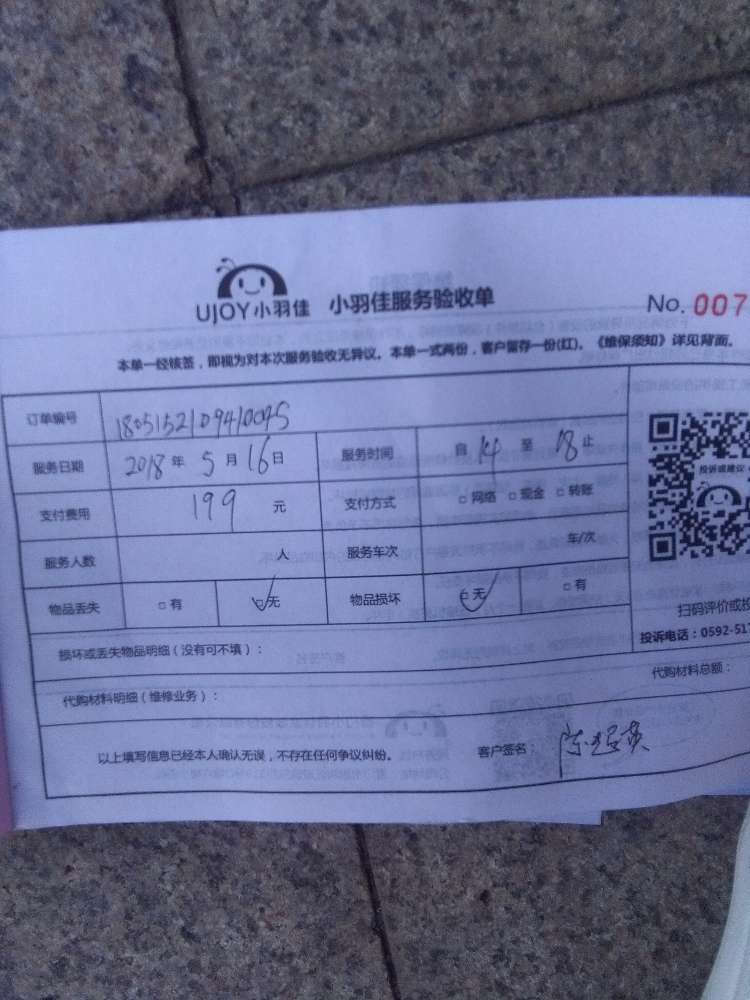 UJOY小羽佳 小羽佳服务验收单 No. 007
本单一经核签，即视为对本次服务验收无异议。本单一式两份，客户留存一份(红)。《维保须知》详见背面。
订单编号 180515210941004S
服务日期 2018年5月16日 服务时间 自14至18止
支付费用 199元 支付方式 □网络 □现金 □转账
服务人数 人 服务车次 车/次
物品丢失 □有 ☑无 物品损坏 ☑无 □有
投诉或建议
扫码评价或投
投诉电话：0592-517
损坏或丢失物品明细（没有可不填）：
代购材料明细（维修业务）： 代购材料总额：
以上填写信息已经本人确认无误，不存在任何争议纠纷。 客户签名：